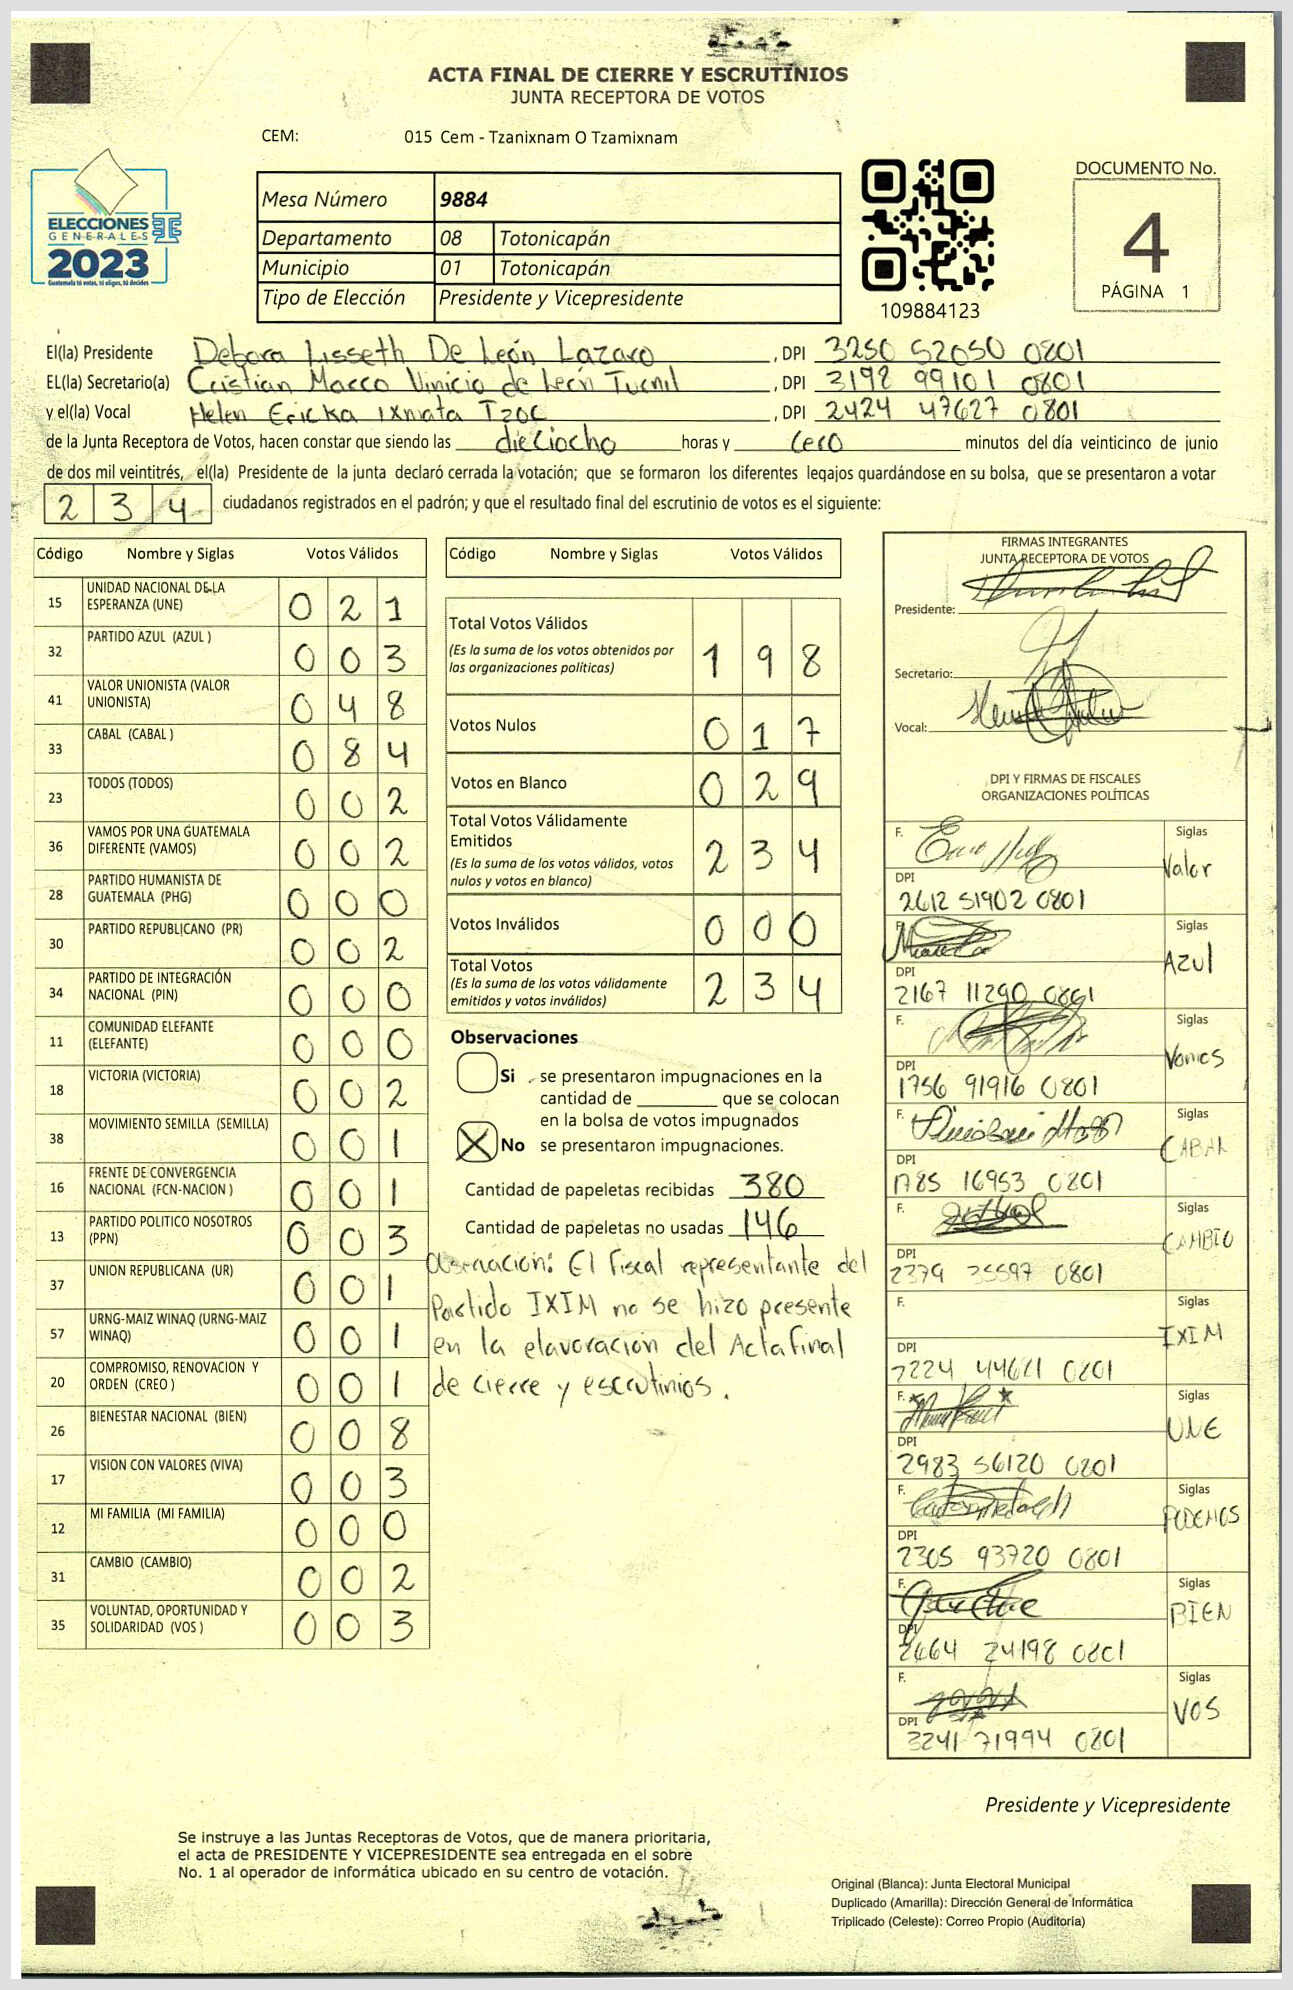 ACTA FINAL DE CIERRE Y ESCRUTINIOS
JUNTA RECEPTORA DE VOTOS
CEM: 015 Cem - Tzanixnam O Tzamixnam
ELECCIONES
GENERALES
2023
Guatemala tú votas, tú eliges, tú decides
Mesa Número 9884
Departamento 08 Totonicapán
Municipio 01 Totonicapán
Tipo de Elección Presidente y Vicepresidente
109884123
DOCUMENTO No.
4
PÁGINA 1
El(la) Presidente Debora Lisseth De León Lazaro, DPI 3250 52050 0801
EL(la) Secretario(a) Cristian Marco Vinicio de León Tucnil, DPI 3198 99101 0801
y el(la) Vocal Helen Ericka Ixmata Tzoc, DPI 2424 47627 0801
de la Junta Receptora de Votos, hacen constar que siendo las dieciocho horas y cero minutos del día veinticinco de junio
de dos mil veintitrés, el(la) Presidente de la junta declaró cerrada la votación; que se formaron los diferentes legajos guardándose en su bolsa, que se presentaron a votar
2 3 4 ciudadanos registrados en el padrón; y que el resultado final del escrutinio de votos es el siguiente:
Código Nombre y Siglas Votos Válidos
15 UNIDAD NACIONAL DE LA ESPERANZA (UNE) 0 2 1
32 PARTIDO AZUL (AZUL ) 0 0 3
41 VALOR UNIONISTA (VALOR UNIONISTA) 0 4 8
33 CABAL (CABAL ) 0 8 4
23 TODOS (TODOS) 0 0 2
36 VAMOS POR UNA GUATEMALA DIFERENTE (VAMOS) 0 0 2
28 PARTIDO HUMANISTA DE GUATEMALA (PHG) 0 0 0
30 PARTIDO REPUBLICANO (PR) 0 0 2
34 PARTIDO DE INTEGRACIÓN NACIONAL (PIN) 0 0 0
11 COMUNIDAD ELEFANTE (ELEFANTE) 0 0 0
18 VICTORIA (VICTORIA) 0 0 2
38 MOVIMIENTO SEMILLA (SEMILLA) 0 0 1
16 FRENTE DE CONVERGENCIA NACIONAL (FCN-NACION ) 0 0 1
13 PARTIDO POLITICO NOSOTROS (PPN) 0 0 3
37 UNION REPUBLICANA (UR) 0 0 1
57 URNG-MAIZ WINAQ (URNG-MAIZ WINAQ) 0 0 1
20 COMPROMISO, RENOVACION Y ORDEN (CREO ) 0 0 1
26 BIENESTAR NACIONAL (BIEN) 0 0 8
17 VISION CON VALORES (VIVA) 0 0 3
12 MI FAMILIA (MI FAMILIA) 0 0 0
31 CAMBIO (CAMBIO) 0 0 2
35 VOLUNTAD, OPORTUNIDAD Y SOLIDARIDAD (VOS ) 0 0 3
Código Nombre y Siglas Votos Válidos
Total Votos Válidos 1 9 8
(Es la suma de los votos obtenidos por
las organizaciones políticas)
Votos Nulos 0 1 7
Votos en Blanco 0 2 9
Total Votos Válidamente
Emitidos 2 3 4
(Es la suma de los votos válidos, votos
nulos y votos en blanco)
Votos Inválidos 0 0 0
Total Votos 2 3 4
(Es la suma de los votos válidamente
emitidos y votos inválidos)
Observaciones
Si se presentaron impugnaciones en la
cantidad de que se colocan
en la bolsa de votos impugnados
No se presentaron impugnaciones.
Cantidad de papeletas recibidas 380
Cantidad de papeletas no usadas 146
Observación: El Fiscal representante del
Partido IXIM no se hizo presente
en la elavoración del Acta Final
de cierre y escrutinios.
FIRMAS INTEGRANTES
JUNTA RECEPTORA DE VOTOS
Presidente:
Secretario:
Vocal:
DPI Y FIRMAS DE FISCALES
ORGANIZACIONES POLÍTICAS
F. Siglas Valor
DPI 2612 51902 0801
F. Siglas AZUl
DPI 2167 11290 0801
F. Siglas Vamos
DPI 1756 91916 0801
F. Siglas CABAL
DPI 1785 16953 0801
F. Siglas CAMBIO
DPI 2379 35597 0801
F. Siglas IXIM
DPI 0801
F. Siglas UNE
DPI 2983 56120 0801
F. Siglas PODEMOS
DPI 2305 93720 0801
F. Siglas BIEN
DPI 2464 24198 0801
F. Siglas VOS
DPI 3241 71994 0801
Presidente y Vicepresidente
Se instruye a las Juntas Receptoras de Votos, que de manera prioritaria,
el acta de PRESIDENTE Y VICEPRESIDENTE sea entregada en el sobre
No. 1 al operador de informática ubicado en su centro de votación.
Original (Blanca): Junta Electoral Municipal
Duplicado (Amarilla): Dirección General de Informática
Triplicado (Celeste): Correo Propio (Auditoría)